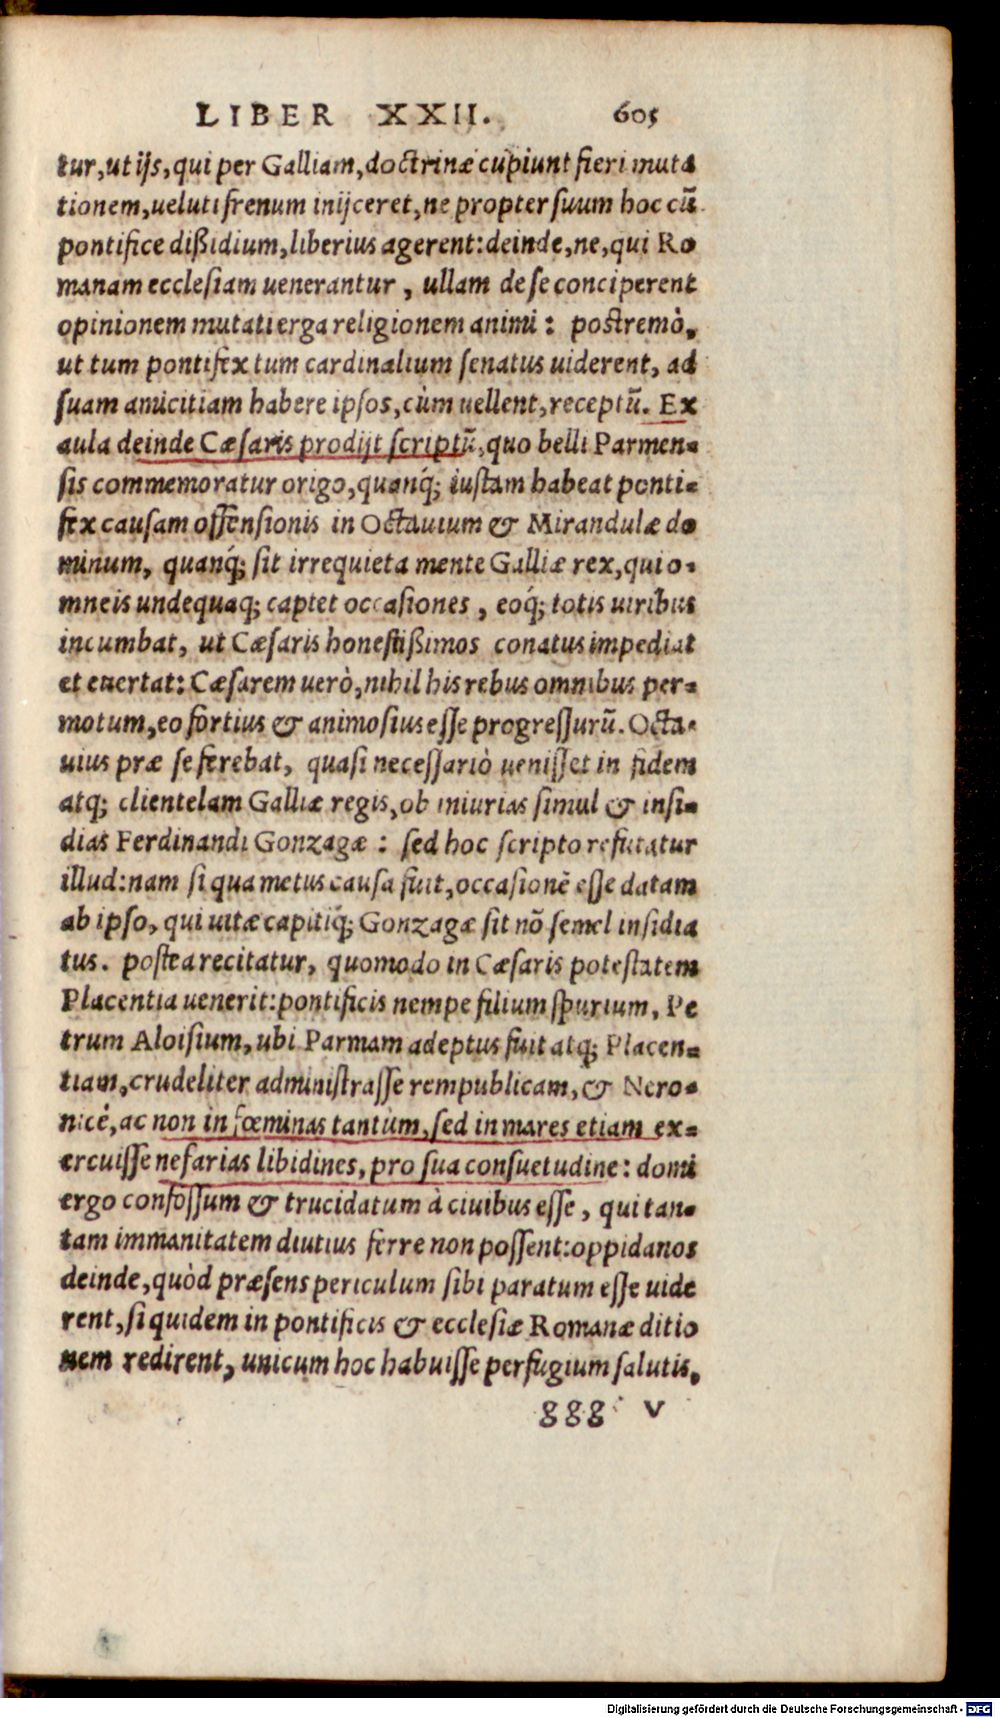 LIBER XXII. 605
tur, ut ijs, qui per Galliam, doctrinæ cupiunt fieri muta
tionem, ueluti frenum inijceret, ne propter suum hoc cũ
pontifice dißidium, liberius agerent: deinde, ne, qui Ro
manam ecclesiam uenerantur, ullam de se conciperent
opinionem mutati erga religionem animi: postremò,
ut tum pontifex tum cardinalium senatus uiderent, ad
suam amicitiam habere ipsos, cùm uellent, receptũ. Ex
aula deinde Cæsaris prodijt scriptũ, quo belli Parmen-
sis commemoratur origo, quanq́; iustam habeat ponti-
fex causam offensionis in Octauium & Mirandulæ do
minum, quanq́; sit irrequieta mente Galliæ rex, qui o-
mneis undequaq; captet occasiones, eoq́; totis uiribus
incumbat, ut Cæsaris honestißimos conatus impediat
et euertat: Cæsarem uerò, nihil his rebus omnibus per-
motum, eo fortius & animosius esse progressurũ. Octa-
uius præ se ferebat, quasi necessariò uenisset in fidem
atq; clientelam Galliæ regis, ob iniurias simul & insi-
dias Ferdinandi Gonzagæ: sed hoc scripto refutatur
illud: nam si qua metus causa fuit, occasionẽ esse datam
ab ipso, qui uitæ capitiq́; Gonzagæ sit nõ semel insidia
tus. postea recitatur, quomodo in Cæsaris potestatem
Placentia uenerit: pontificis nempe filium spurium, Pe
trum Aloisium, ubi Parmam adeptus fuit atq; Placen-
tiam, crudeliter administrasse rempublicam, & Nero-
nicè, ac non in fœminas tantùm, sed in mares etiam ex-
ercuisse nefarias libidines, pro sua consuetudine: domi
ergo confossum & trucidatum à ciuibus esse, qui tan-
tam immanitatem diutius ferre non possent: oppidanos
deinde, quòd præsens periculum sibi paratum esse uide
rent, si quidem in pontificis & ecclesiæ Romanæ ditio
nem redirent, unicum hoc habuisse perfugium salutis,
ggg v
Digitalisierung gefördert durch die Deutsche Forschungsgemeinschaft - DFG